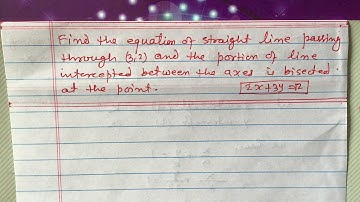 Find the equation of straight line passing
through (3,2) and the portion of line
intercepted between the axes is bisected.
at the point. 2x+3y=12